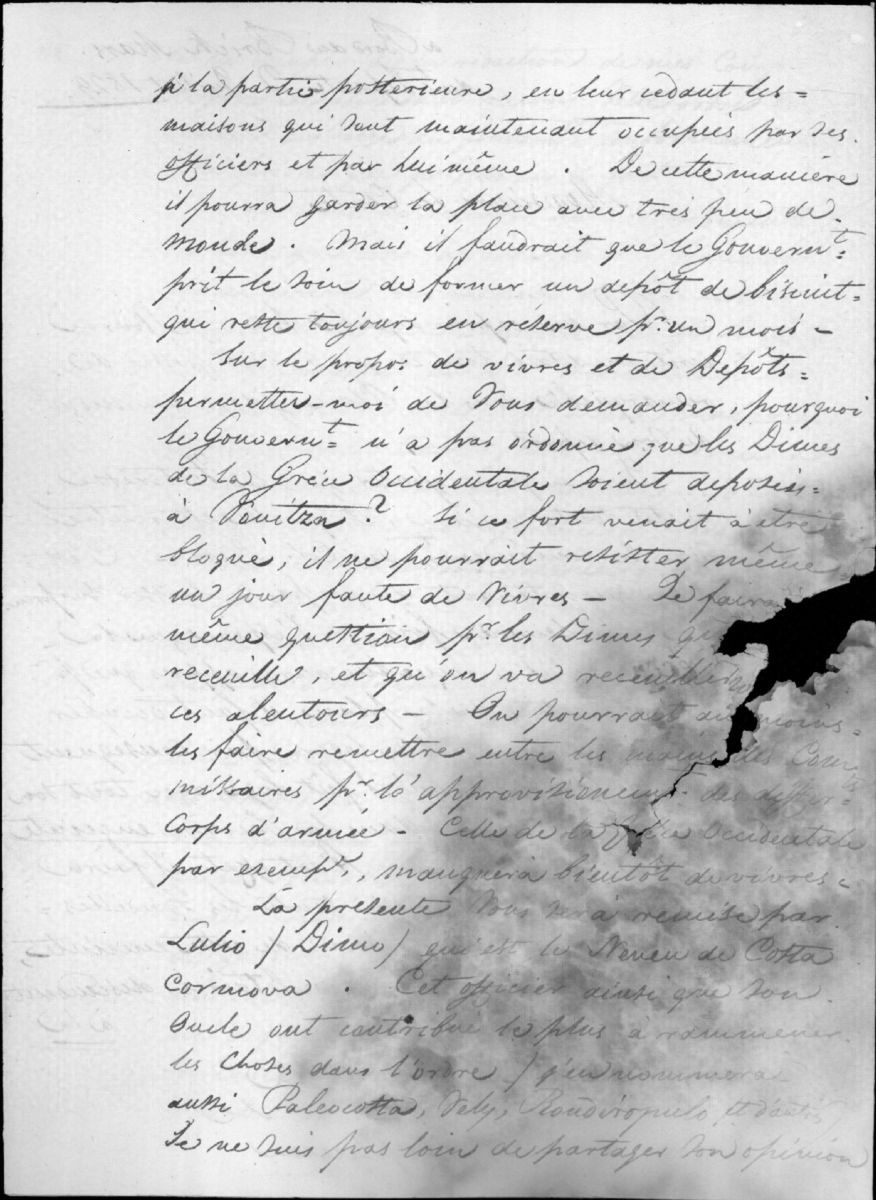 à la partie posterieure, en leur cedant les=
maisons qui sont maintenant occupées par ses
officiers et par lui même. De cette manière
il pourra garder la place avec très peu de
monde. Mais il faudrait que le Gouvernt=
prit le soin de former un depôt de biscuit=
qui reste toujours en réserve pr. un mois –
Sur le propos de vivres et de Depôts=
permettez-moi de Vous demander, pourquoi
le Gouvernt= n'a pas ordonné que les Dimes
de la Gréce Occidentale soient deposées=
à Vonitza? Si ce fort venait à etre
bloqué, il ne pourrait resister même
un jour faute de vivres – Je fairai
même question pr. les Dimes
receuille, et qu'on va
ces alentours – On pourrait au moins=
les faire remettre entre les mains des Com
missaires pr. l'approvisionemt des differ=
Corps d'armée – Celle de la Occidentale
par exempe., manquera bientôt de vivres –
La presente Vous sera remise par
Lulio / Dimo / qui est le Neveu de Costa
Cormova. Cet officier ainsi que son
Oncle ont contribué le plus à rammener
les choses dans l'ordre / j'en nommerai
aussi Paleocosta, Vely, et d'autres /
Je ne suis pas loin de partager son opinion